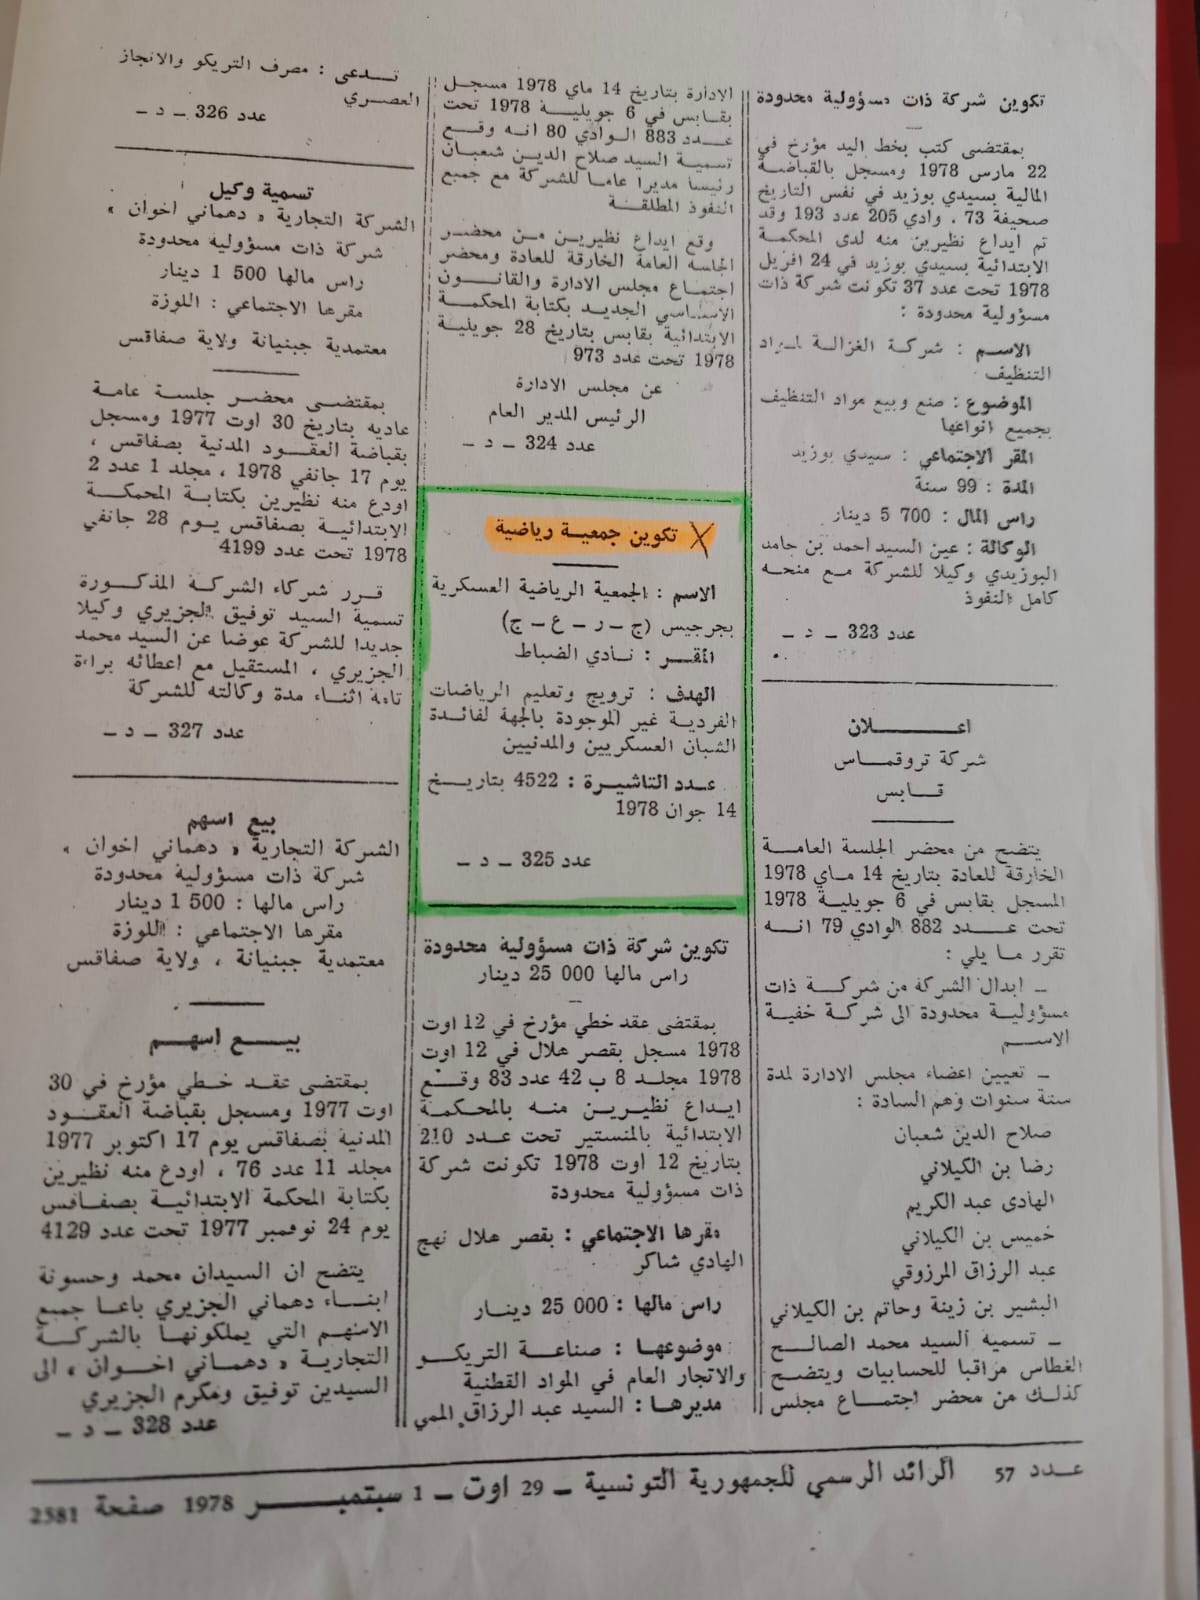 تكوين شركة ذات مسؤولية محدودة
بمقتضى كتب بخط اليد مؤرخ في
22 مارس 1978 ومسجل بالقباضة
المالية بسيدي بوزيد في نفس التاريخ
صحيفة 73 ، وادي 205 عدد 193 وقد
تم ايداع نظيرين منه لدى المحكمة
الابتدائية بسيدي بوزيد في 24 افريل
1978 تحت عدد 37 تكونت شركة ذات
مسؤولية محدودة :
الاسم : شركة الغزالة لمواد
التنظيف
الموضوع : صنع وبيع مواد التنظيف
بجميع انواعها
المقر الاجتماعي : سيدي بوزيد
المدة : 99 سنة
راس المال : 700 5 دينار
الوكالة : عين السيد احمد بن حامد
البوزيدي وكيلا للشركة مع منحه
كامل النفوذ
عدد 323 ــ د ــ
اعــلان
شركة تروقماس
قـابس
يتضح من محضر الجلسة العامة
الخارقة للعادة بتاريخ 14 ماي 1978
المسجل بقابس في 6 جويلية 1978
تحت عدد 882 الوادي 79 انه
تقرر ما يلي :
ــ ابدال الشركة من شركة ذات
مسؤولية محدودة الى شركة خفية
الاسم
ــ تعيين اعضاء مجلس الادارة لمدة
ستة سنوات وهم السادة :
صلاح الدين شعبان
رضا بن الكيلاني
الهادى عبد الكريم
خميس بن الكيلاني
عبد الرزاق المرزوقي
البشير بن زينة وحاتم بن الكيلاني
ــ تسمية السيد محمد الصالح
الغطاس مراقبا للحسابيات ويتضح
كذلك من محضر اجتماع مجلس
الادارة بتاريخ 14 ماي 1978 مسجل
بقابس في 6 جويلية 1978 تحت
عدد 883 الوادي 80 انه وقع
تسمية السيد صلاح الدين شعبان
رئيسا مديرا عاما للشركة مع جميع
النفوذ المطلقة
وقع ايداع نظيرين من محضر
الجلسة العامة الخارقة للعادة ومحضر
اجتماع مجلس الادارة والقانون
الاساسي الجديد بكتابة المحكمة
الابتدائية بقابس بتاريخ 28 جويلية
1978 تحت عدد 973
عن مجلس الادارة
الرئيس المدير العام
عدد 324 ــ د ــ
تكوين جمعية رياضية
الاسم : الجمعية الرياضية العسكرية
بجرجيس (ج ــ ر ــ ع ــ ج)
المقر : نادي الضباط
الهدف : ترويج وتعليم الرياضات
الفردية غير الموجودة بالجهة لفائدة
الشبان العسكريين والمدنيين
عدد التاشيرة : 4522 بتاريخ
14 جوان 1978
عدد 325 ــ د ــ
تكوين شركة ذات مسؤولية محدودة
راس مالها 000 25 دينار
بمقتضى عقد خطي مؤرخ في 12 اوت
1978 مسجل بقصر هلال في 12 اوت
1978 مجلد 8 ب 42 عدد 83 وقع
ايداع نظيرين منه بالمحكمة
الابتدائية بالمنستير تحت عدد 210
بتاريخ 12 اوت 1978 تكونت شركة
ذات مسؤولية محدودة
مقرها الاجتماعي : بقصر هلال نهج
الهادي شاكر
راس مالها : 000 25 دينار
موضوعها : صناعة التريكو
والاتجار العام في المواد القطنية
مديرها : السيد عبد الرزاق الممي
تدعى : مصرف التريكو والانجاز
العصري
عدد 326 ــ د ــ
تسمية وكيل
الشركة التجارية « دهماني اخوان »
شركة ذات مسؤولية محدودة
راس مالها 500 1 دينار
مقرها الاجتماعي : اللوزة
معتمدية جبنيانة ولاية صفاقس
بمقتضى محضر جلسة عامة
عادية بتاريخ 30 اوت 1977 ومسجل
بقباضة العقود المدنية بصفاقس ،
يوم 17 جانفي 1978 ، مجلد 1 عدد 2
اودع منه نظيرين بكتابة المحمكة
الابتدائية بصفاقس يوم 28 جانفي
1978 تحت عدد 4199
قرر شركاء الشركة المذكورة
تسمية السيد توفيق الجزيري وكيلا
جديدا للشركة عوضا عن السيد محمد
الجزيري ، المستقيل مع اعطائه براءة
تامة اثناء مدة وكالته للشركة
عدد 327 ــ د ــ
بيع اسهم
الشركة التجارية « دهماني اخوان »
شركة ذات مسؤولية محدودة
راس مالها : 500 1 دينار
مقرها الاجتماعي : اللوزة
معتمدية جبنيانة ، ولاية صفاقس
بيــع اسهــم
بمقتضى عقد خطي مؤرخ في 30
اوت 1977 ومسجل بقباضة العقود
المدنية بصفاقس يوم 17 اكتوبر 1977
مجلد 11 عدد 76 ، اودع منه نظيرين
بكتابة المحكمة الابتدائية بصفاقس
يوم 24 نوفمبر 1977 تحت عدد 4129
يتضح ان السيدان محمد وحسونة
ابناء دهماني الجزيري باعا جميع
الاسهم التي يملكونها بالشركة
التجارية « دهماني اخوان » الى
السيدين توفيق ومكرم الجزيري
عدد 328 ــ د ــ
عدد 57 الرائد الرسمي للجمهورية التونسية ــ 29 اوت ــ 1 سبتمبر 1978 صفحة 2581